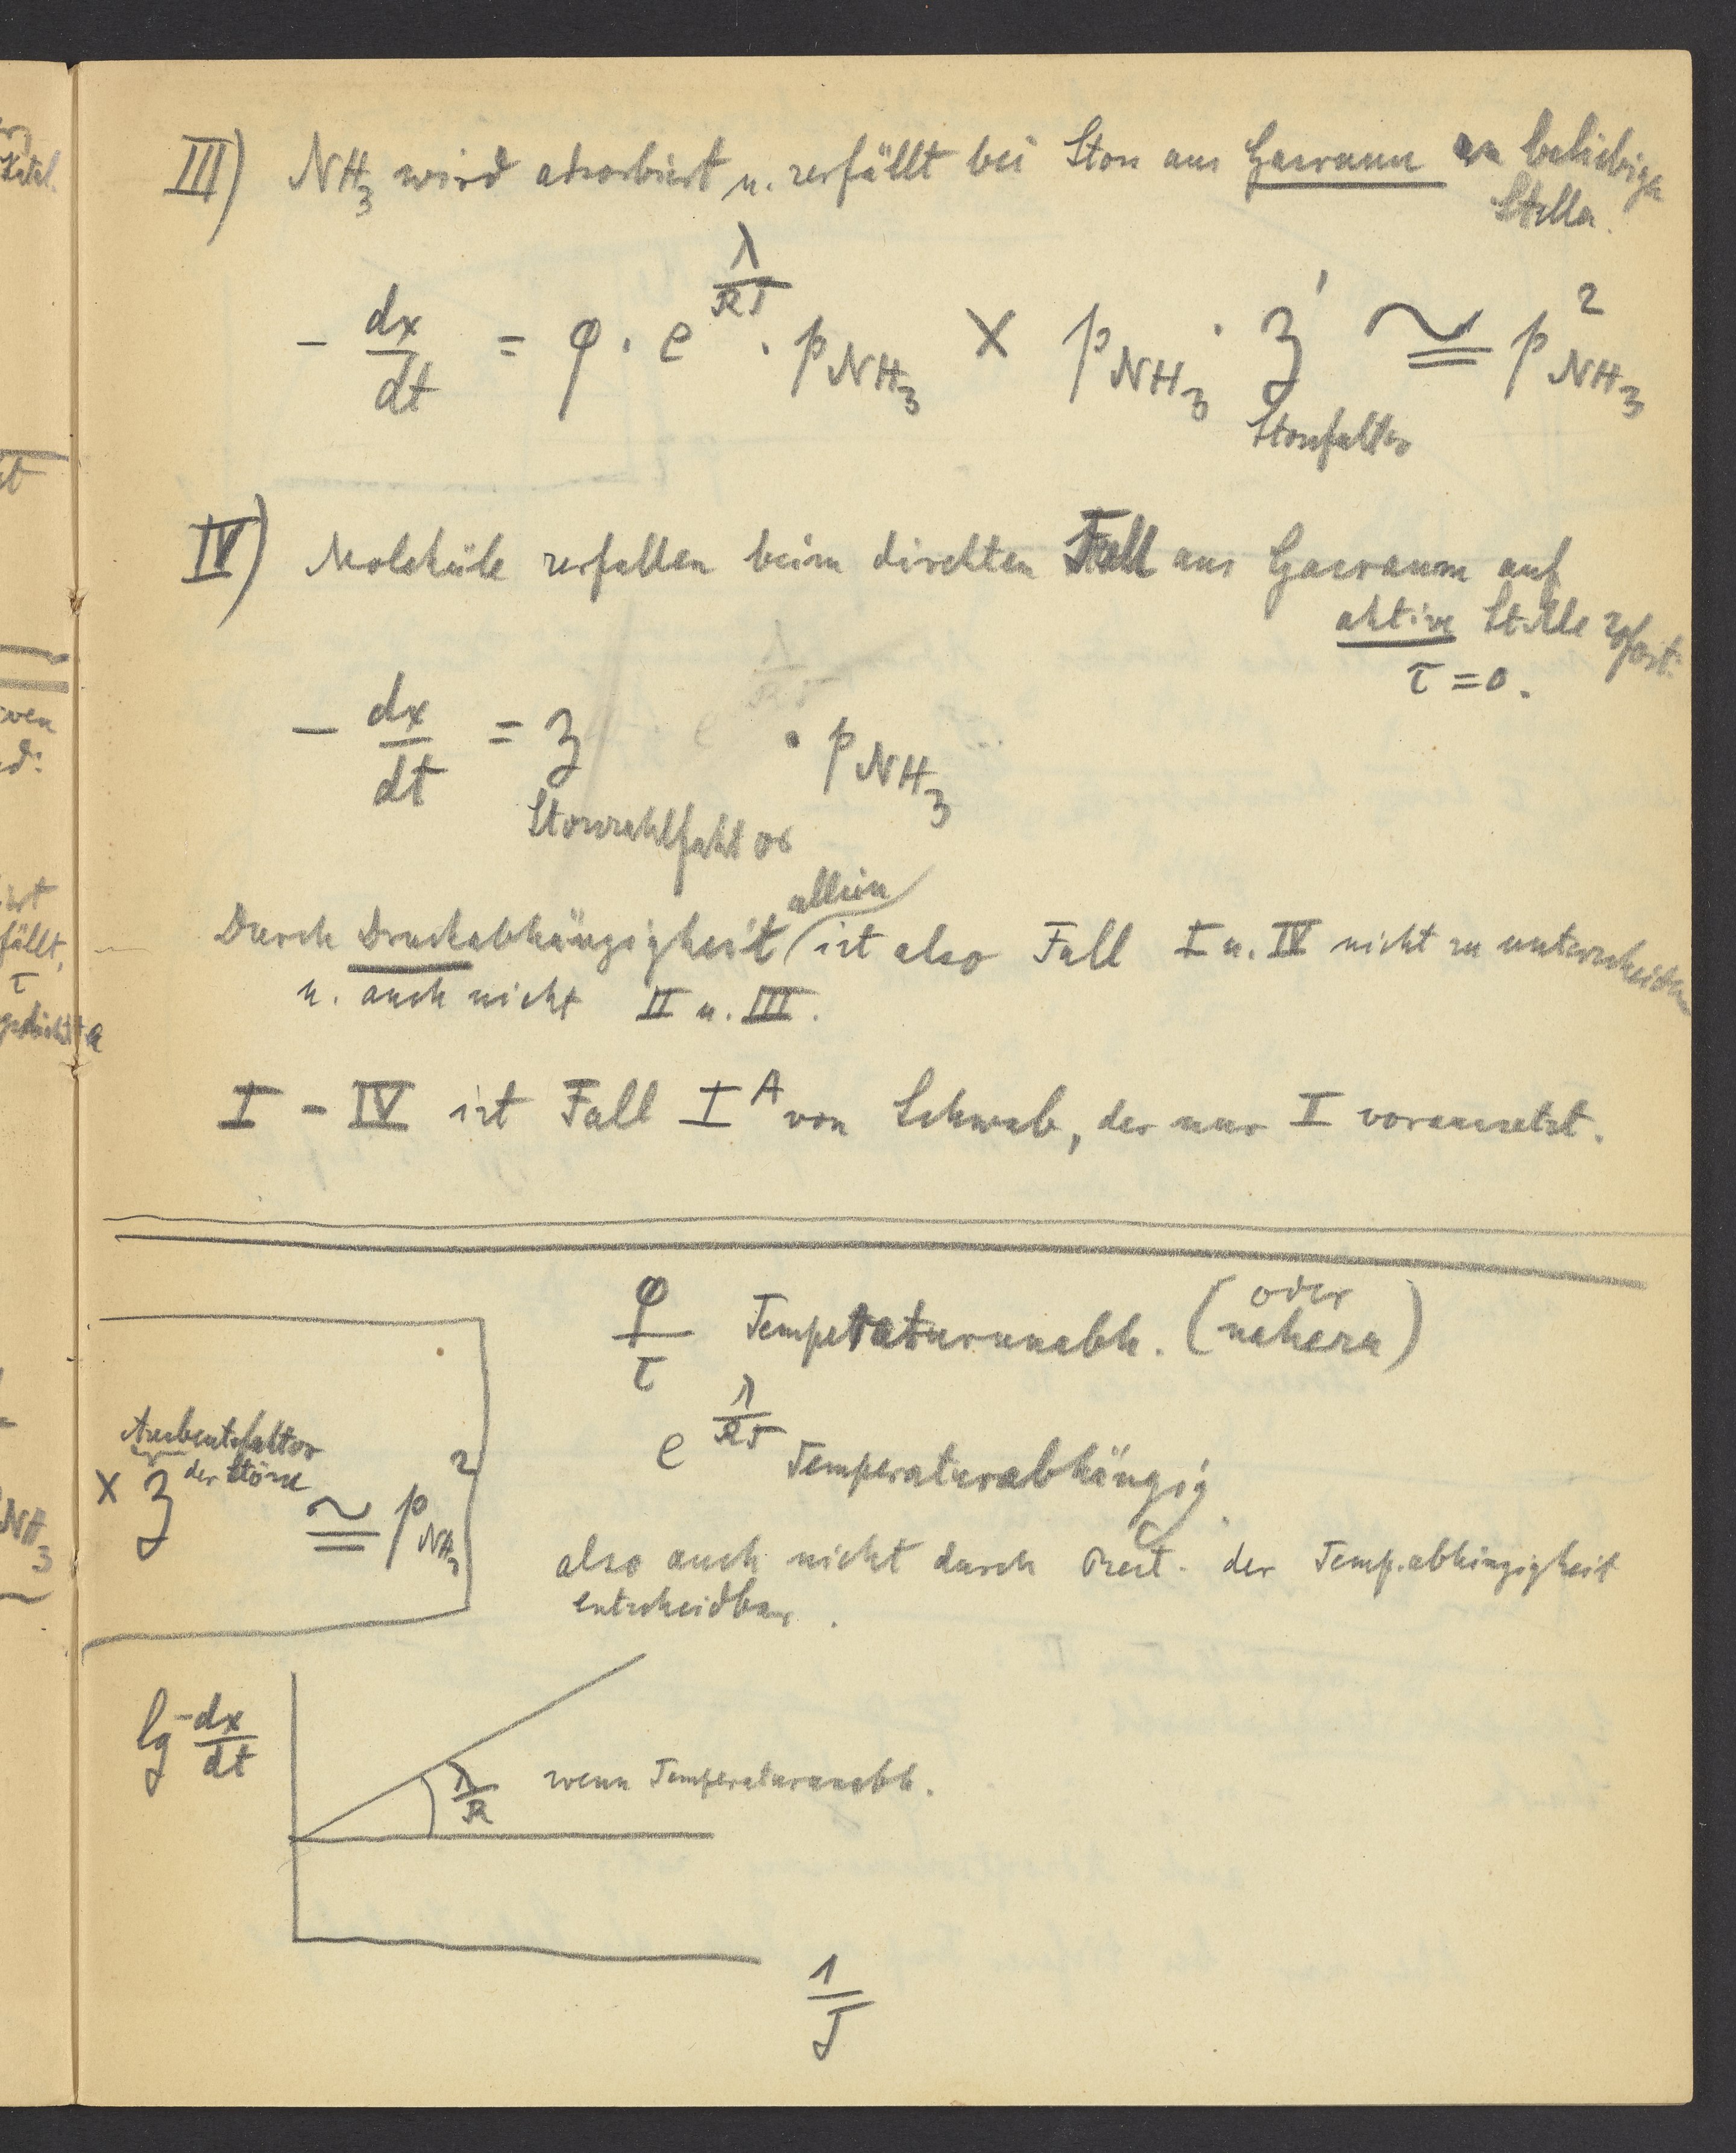 III) NH3 wird adsorbiert u. zerfällt bei Stoss aus Gasraum an beliebiger
Stelle.
- dx/dt = φ · e^(λ/RT) · p_NH3 × p_NH3 · z' ≅ p²_NH3
Stossfaktor
IV) Moleküle zerfallen beim direkten Fall aus Gasraum auf
aktive Stelle sofort.
τ = 0.
- dx/dt = z · p_NH3
Stosszahlfaktor
allein
Durch Druckabhängigkeit ist also Fall I u. IV nicht zu unterscheiden
u. auch nicht II u. III.
I - IV ist Fall I A von Schwab, der nur I voraussetzt.
φ/τ Temperaturunabh. (oder
nahezu)
e^(λ/RT) Temperaturabhängig
also auch nicht durch Best. der Temp.abhängigkeit
entscheidbar.
Ausbeutefaktor
der Stösse
× z ≅ p²_NH3
lg -dx/dt
λ/R wenn Temperaturunabh.
1/T